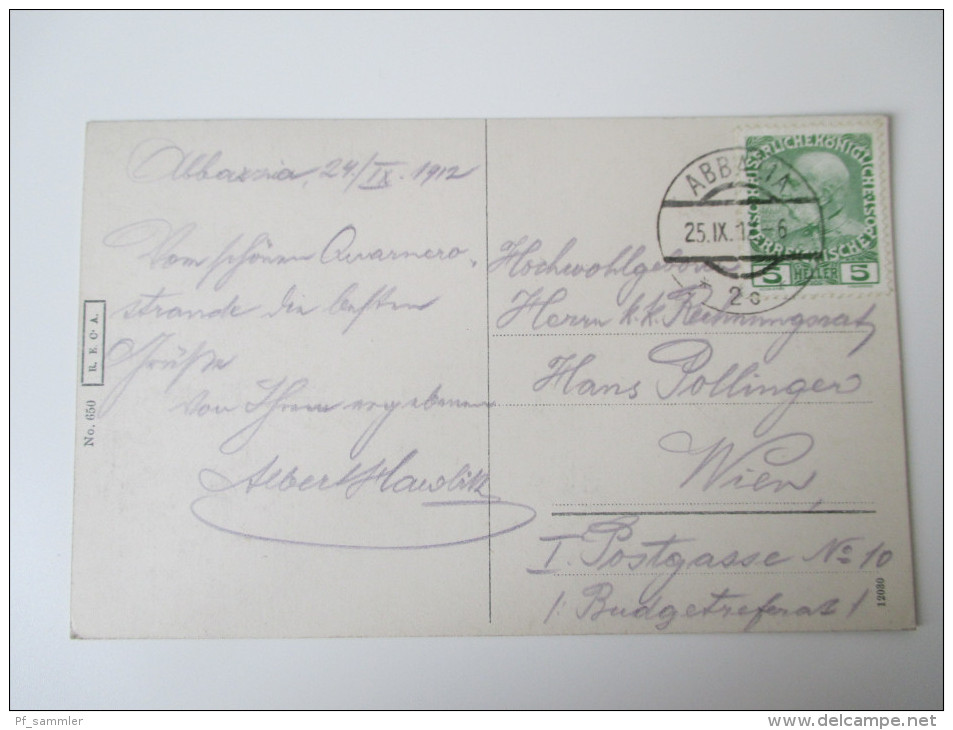 Abbazia, 24./IX. 1912
Vom schönen Quarnero-
strande die besten
Grüße
von Ihrem ergebenen
Albert Hawlitz
No. 650
R. E. C. A.
ABBAZIA
25.IX.12 - 6
* 2c
KAISERLICHE KÖNIGLICHE ÖSTERREICHISCHE POST
5 HELLER 5
Hochwohlgeboren
Herrn k.k. Rechnungsrat
Hans Pollinger
Wien,
I. Postgasse No 10
/: Budgetreferat /
12030
Pf_sammler
http://www.delcampe.net